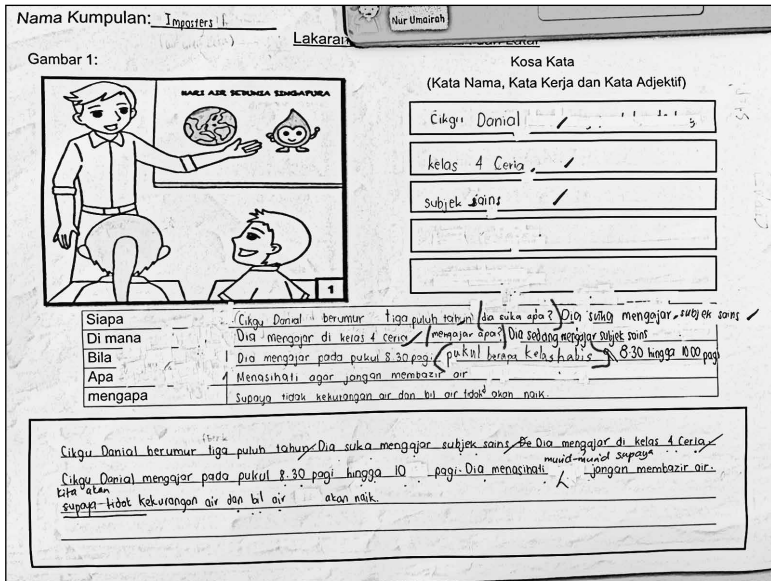 Nama Kumpulan: Imposters
Nur Umairah
Lakaran
Gambar 1:
Kosa Kata
(Kata Nama, Kata Kerja dan Kata Adjektif)
HARI AIR SEDUNIA SINGAPURA
1
Cikgu Danial
kelas 4 Ceria
subjek sains
Siapa Cikgu Danial berumur tiga puluh tahun (dia suka apa?) Dia suka mengajar subjek sains
Di mana Dia mengajar di kelas 4 Ceria (mengajar apa?) Dia sedang mengajar subjek sains
Bila Dia mengajar pada pukul 8.30 pagi (pukul berapa kelas habis) 8:30 hingga 10:00 pagi
Apa Menasihati agar jangan membazir air
mengapa Supaya tidak kekurangan air dan bil air tidak akan naik.
Cikgu Danial berumur tiga puluh tahun. Dia suka mengajar subjek sains. Dia mengajar di kelas 4 Ceria.
murid-murid supaya
Cikgu Danial mengajar pada pukul 8.30 pagi hingga 10 pagi. Dia menasihati jangan membazir air.
kita akan
supaya tidak kekurangan air dan bil air akan naik.